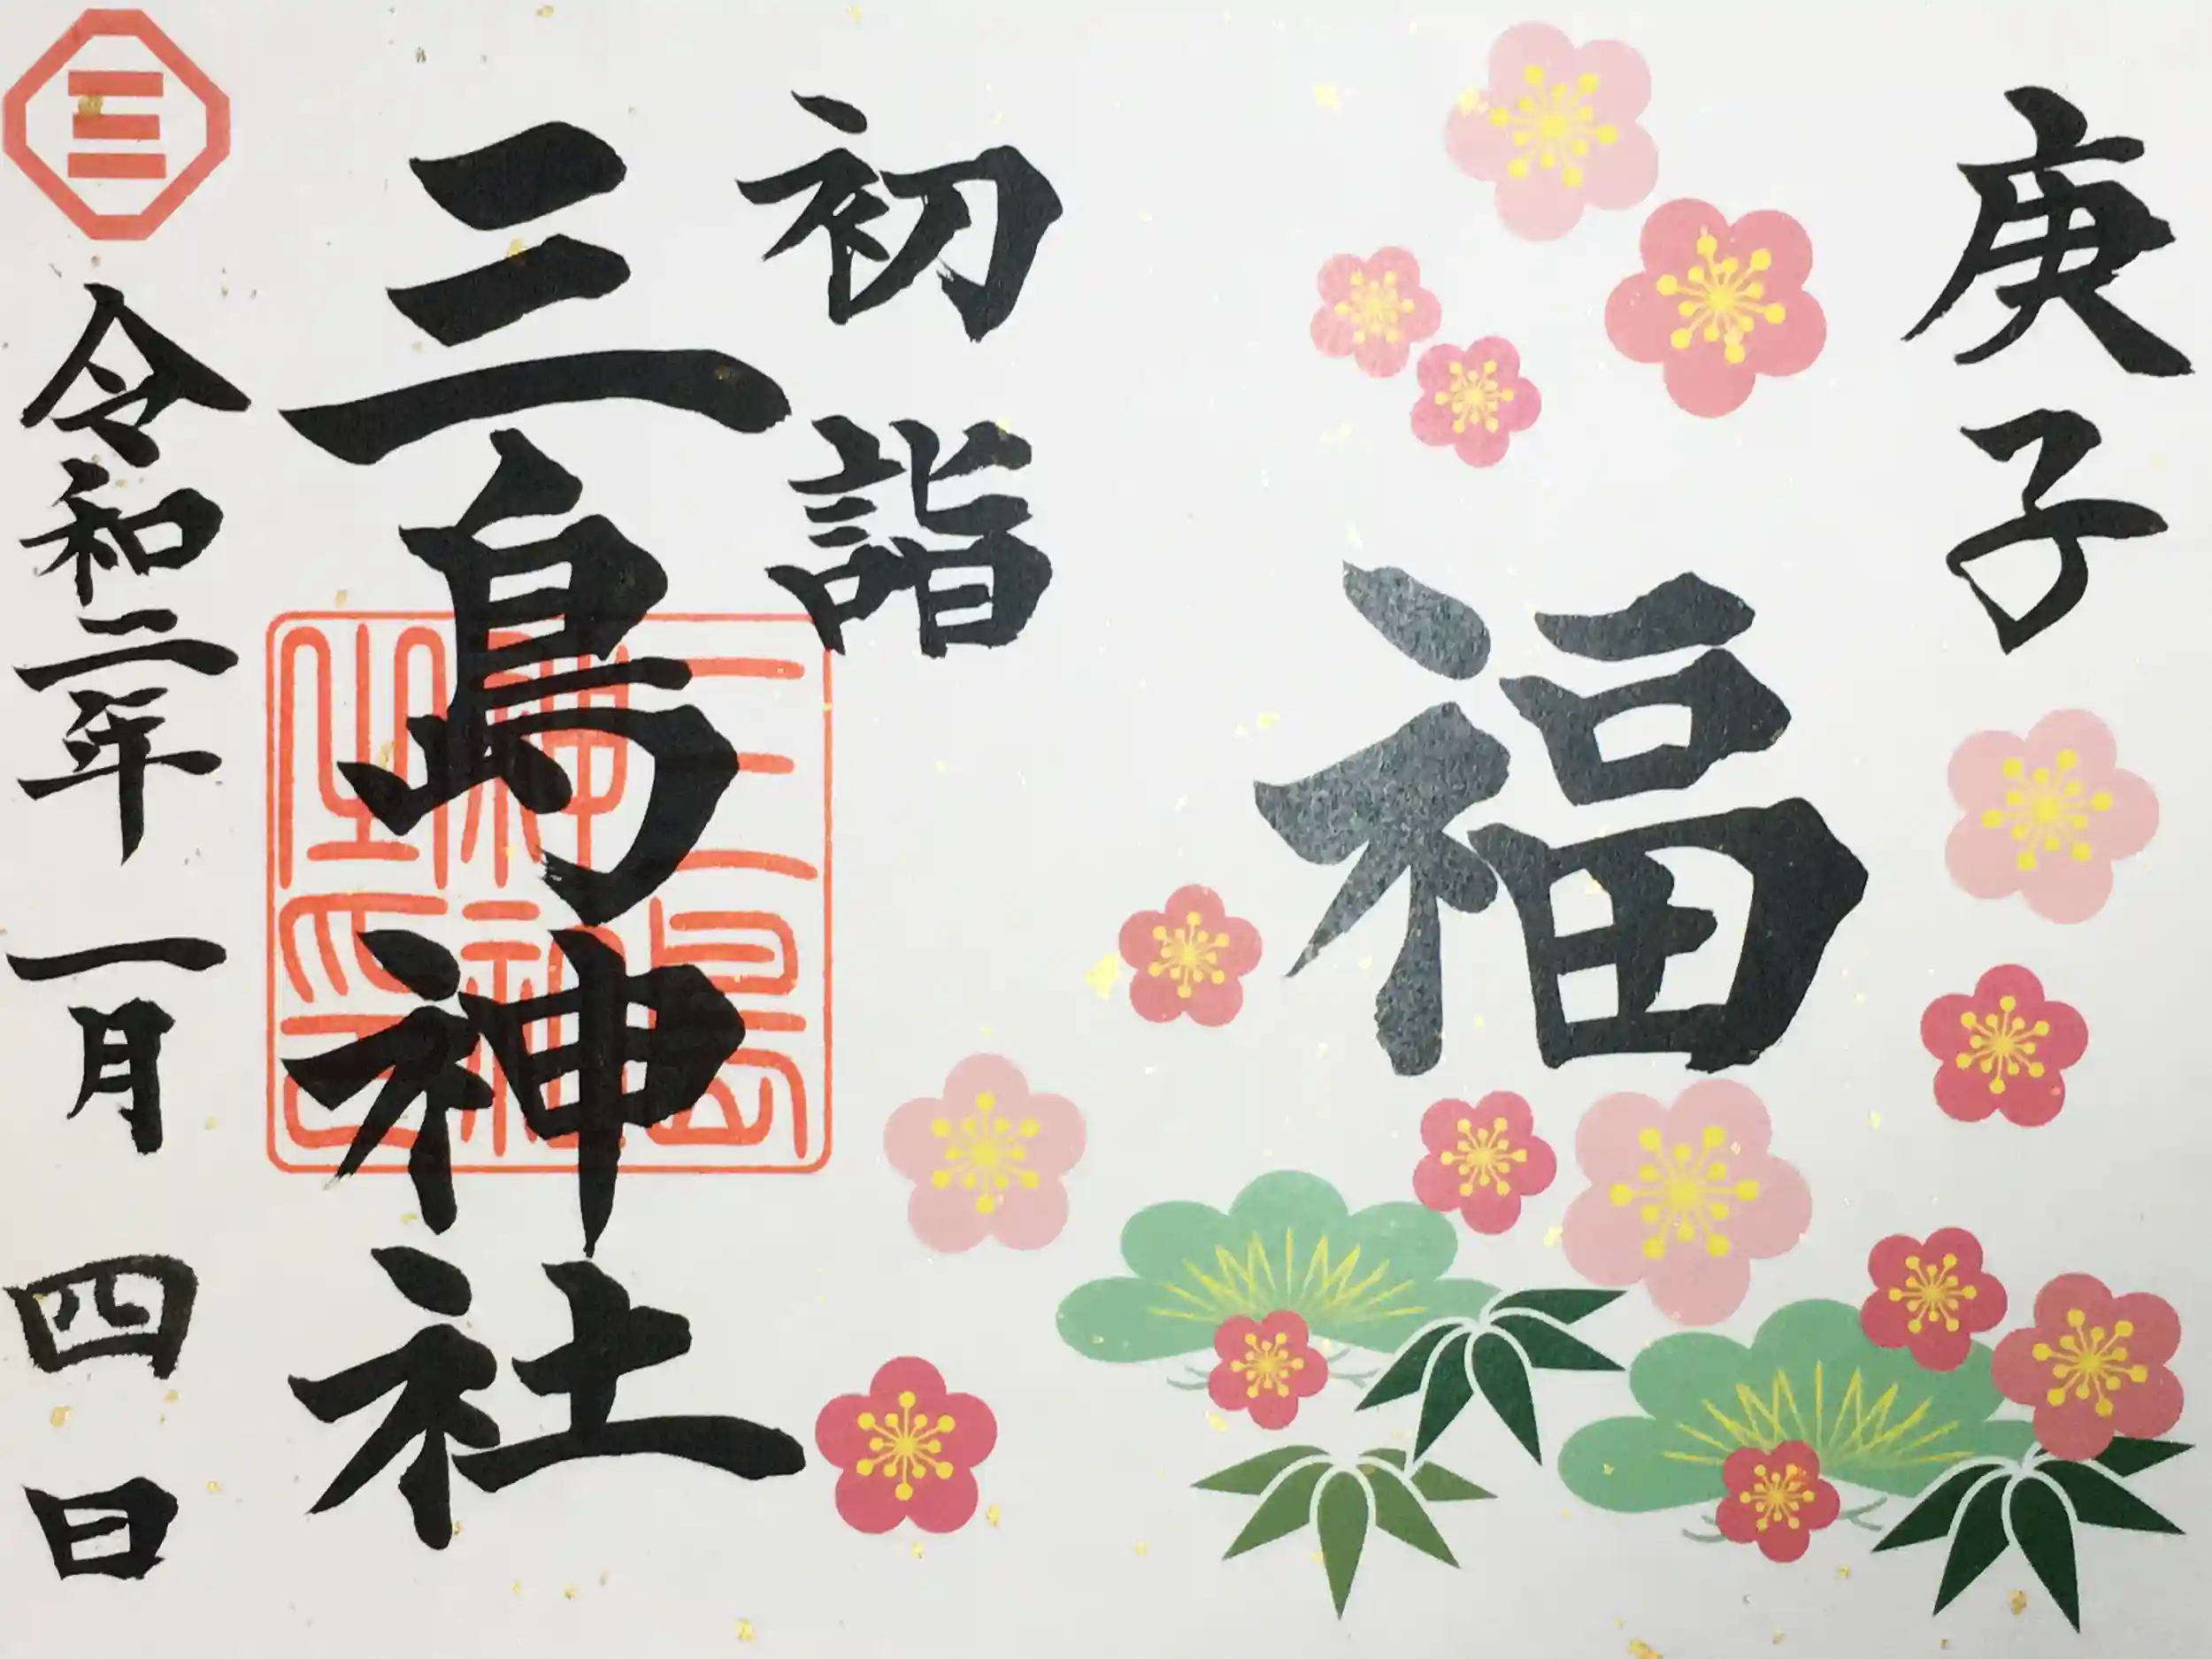 庚子
福
初詣
三島神社
三島神社之印
三
令和二年一月四日